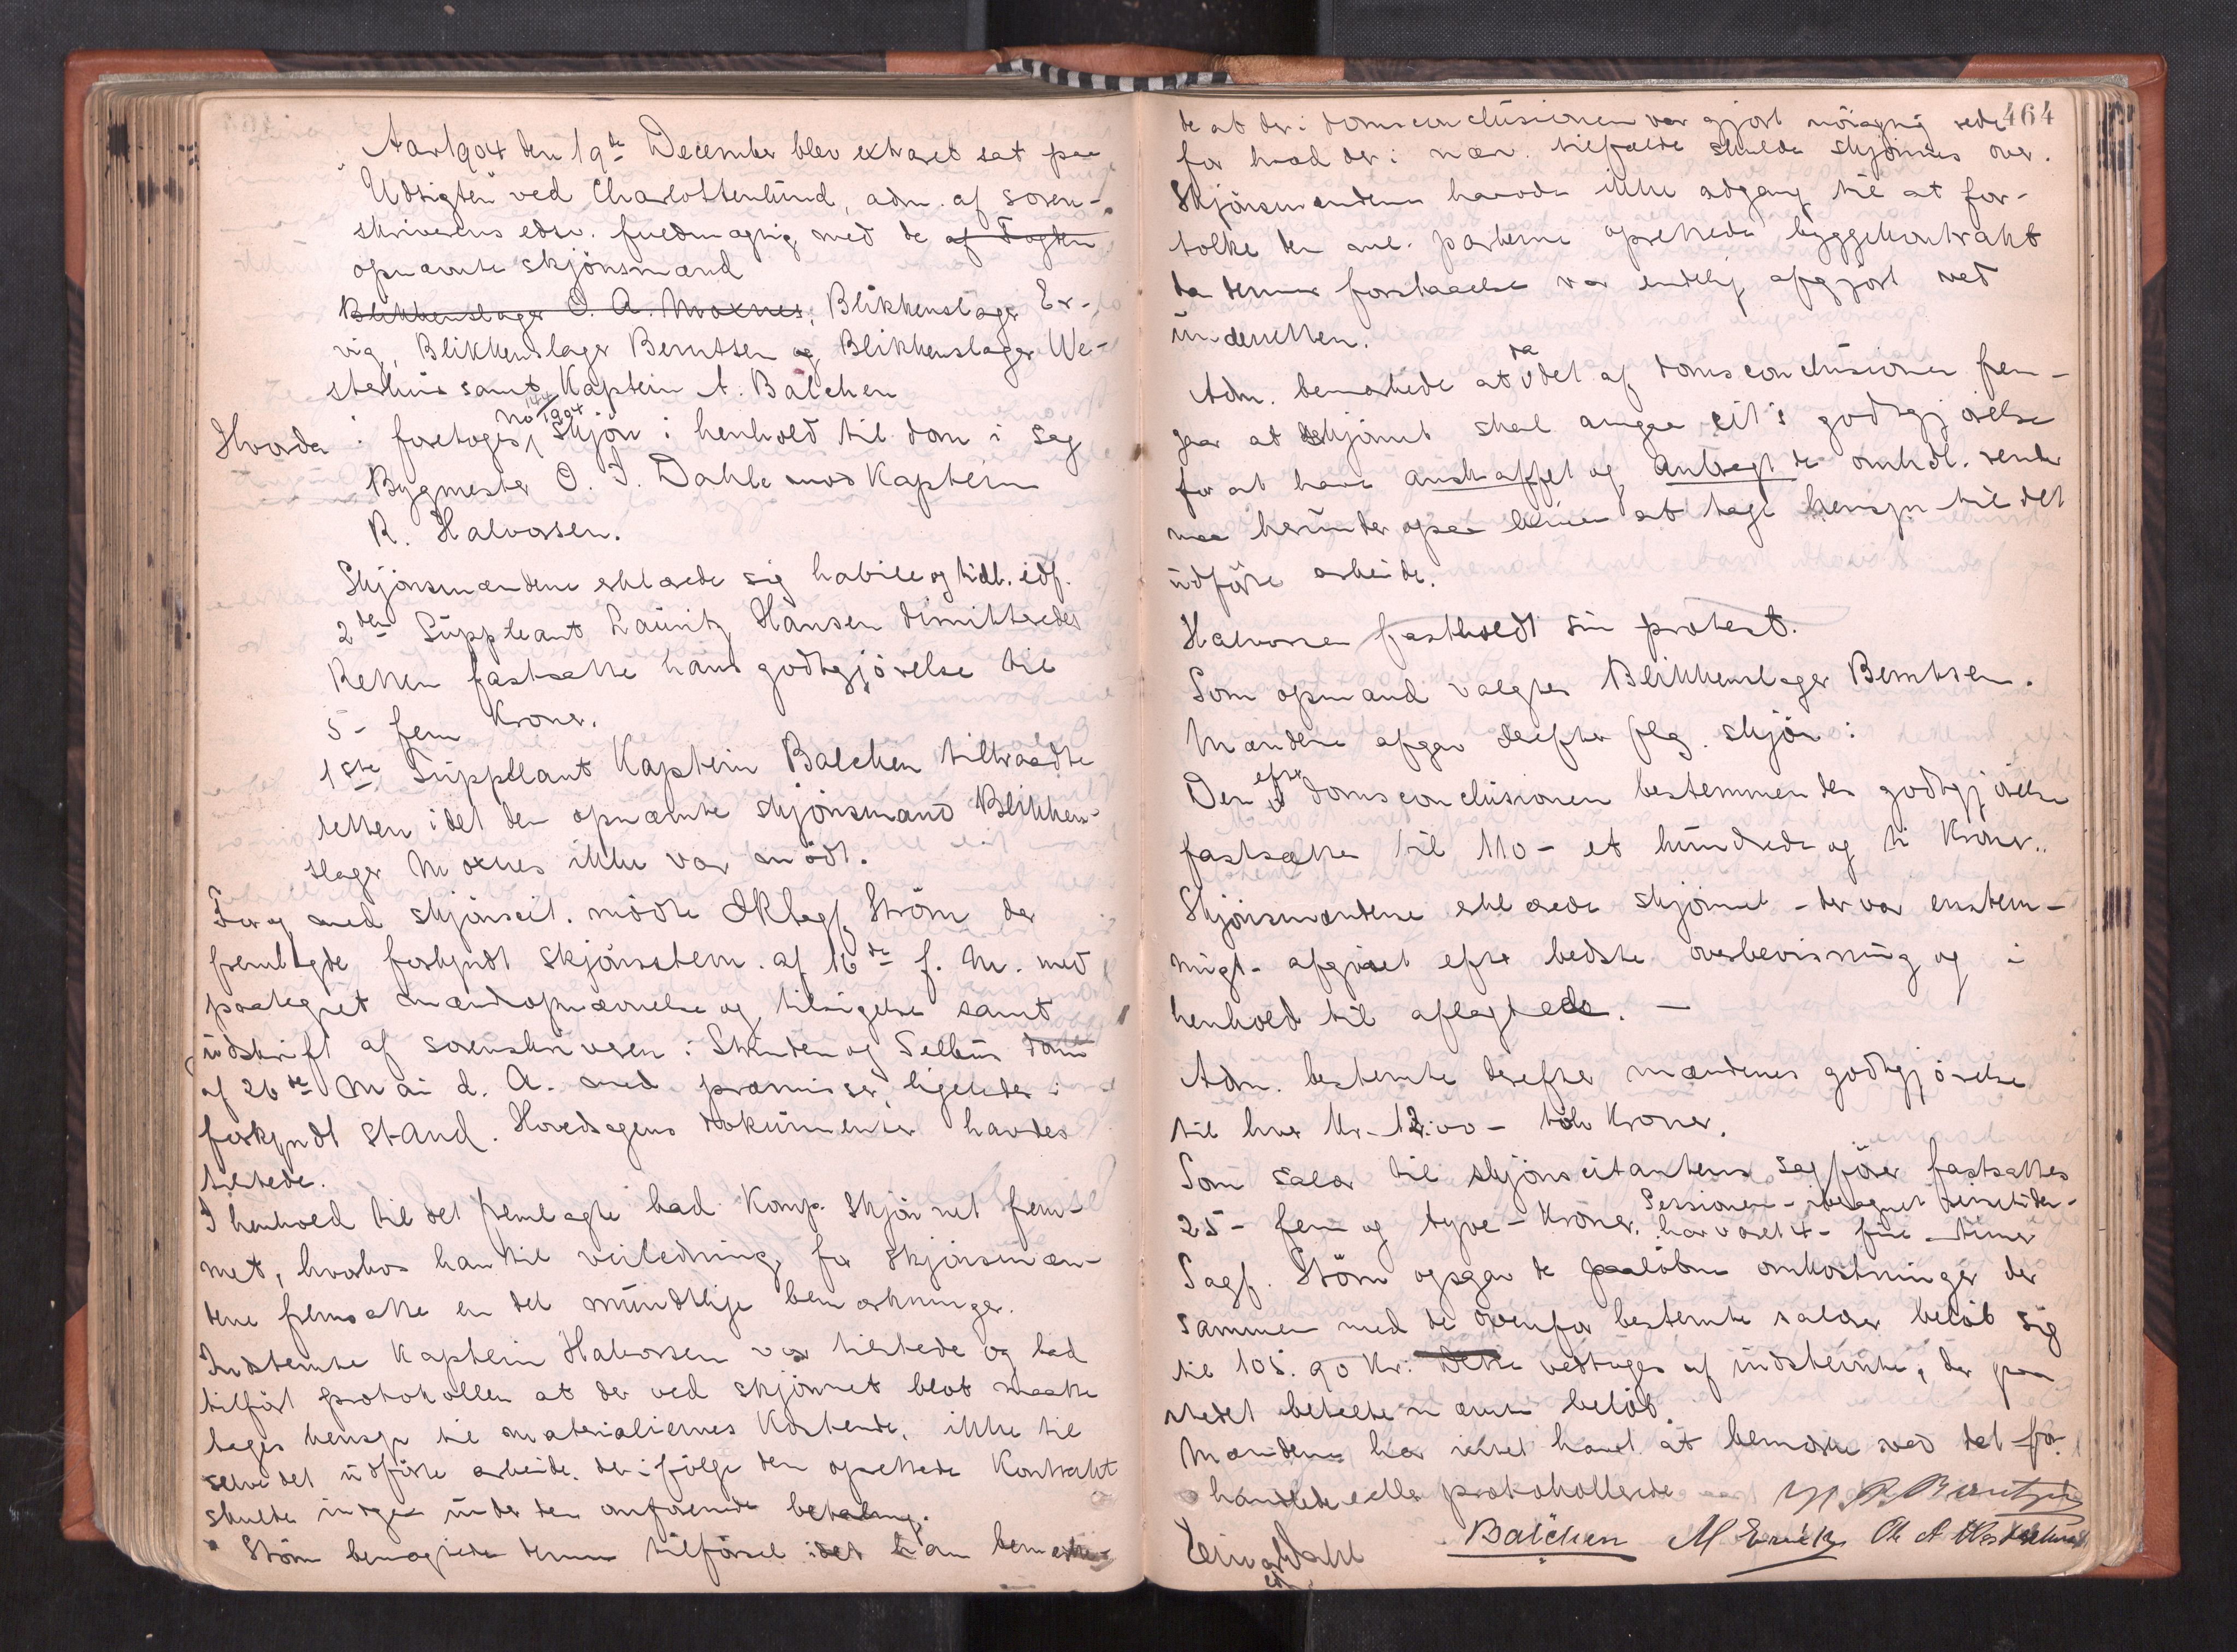 Aar 1904 den 19de December blev extraret sat paa
"Udsigten" ved Charlottenlund, adm. af soren-
skriverens edsv. fuldmægtig med de af Fogden
opnævnte skjönsmænd
Blikkenslager O. A. Moxnes, Blikkenslager Er-
vig, Blikkenslager Berntsen og Blikkenslager We-
sterhus samt Kaptein A. Balchen
Hvorda
No 144/1904
foretoges Skjön i henhold til dom i sag
Bygmester O. J. Dahle mod Kaptein
R. Halvorsen.
Skjönsmændene erklærede sig habile og tidl. edf.
2den Suppleant Lauritz Hansen dimitteredes
Retten fastsatte hans godtgjörelse til
5 - fem Kroner.
1ste Suppleant Kaptein Balchen tiltraadte
retten idet den opnævnte skjönsmand Blikken-
slager Moxnes ikke var mödt.
For og med skjönscit. mödte Sagf. Ström der
fremlagde forkyndt skjönsstevn. af 16de f. M. med
paategnet mændsopnævnelse og tilsigelse samt
udskrift af sorenskriveren i Strinden og Selbus dom
af 26de Mai d. A. med præmisser, ligeledes i
forkyndt stand. Hovedsagens dokumenter havdes
tilstede.
I henhold til det fremlagte bad Komp. Skjönnet frem-
met, hvorhos han til veiledning for skjönsmæn-
dene fremsatte en del mundtlige bemærkninger.
Indstevnte Kaptein Halvorsen var tilstede og bad
tilfört protokollen at der ved skjönnet blot maatte
tages hensyn til materialiernes Kostende, ikke til
selve det udförte arbeide, der ifölge den oprettede Kontrakt
skulde indgaa under den omforenede betaling.
Ström benegtede denne tilförsel idet han bemærke-
464
de at der i domsconclusionen var gjort nöiagtig rede
for hvad der i nærv. tilfælde skulde skjönnes over.
Skjönsmændene havde ikke adgang til at for-
tolke den mel. parterne oprettede byggekontrakt
da dennes forstaaelse var endelig afgjort ved
underretten.
Adm. bemærkede at da det af domsconclusionen frem-
gaar at skjönnet skal angaa cit's godtgjörelse
for at have anskaffet og anbragt de omhdl. render
maa herunder ogsaa blive at tage hensyn til det
udförte arbeide.
Halvorsen fastholdt sin protest.
Som opmand valgtes Blikkenslager Berntsen.
Mændene afgav derefter flg. skjön:
Den efter domsconclusionen bestemmendes godtgjörelse
fastsættes til 110 - et hundrede og ti Kroner.
Skjönsmændene erklærede skjönnet - der var enstem-
migt - afgivet efter bedste overbevisning og i
henhold til aflagt ed. —
Adm. bestemte derefter mændenes godtgjörelse
til hver Kr. 12.00 - tolv Kroner.
Som salær til skjönscitantens sagförer fastsattes
25 - fem og tyve - Kroner. Sessionen - iberegnet reisetiden -
har varet 4 - fire timer
Sagf. Ström opgav de paalöbne omkostninger der
sammen med de ovenfor bestemte salær belöb sig
til 105.90 Kr. Dette vedtoges af indstevnte, der paa
stedet betalte nævnte belöb.
Mændene har intet havt at bemærke ved det for-
handlede eller protokollerede
Balchen M Ervik Ole A Westerhus
Einar Dahl